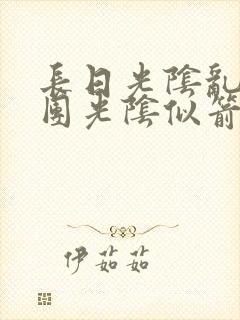 長日光陰亂
園光陰似箭
伊茹茹